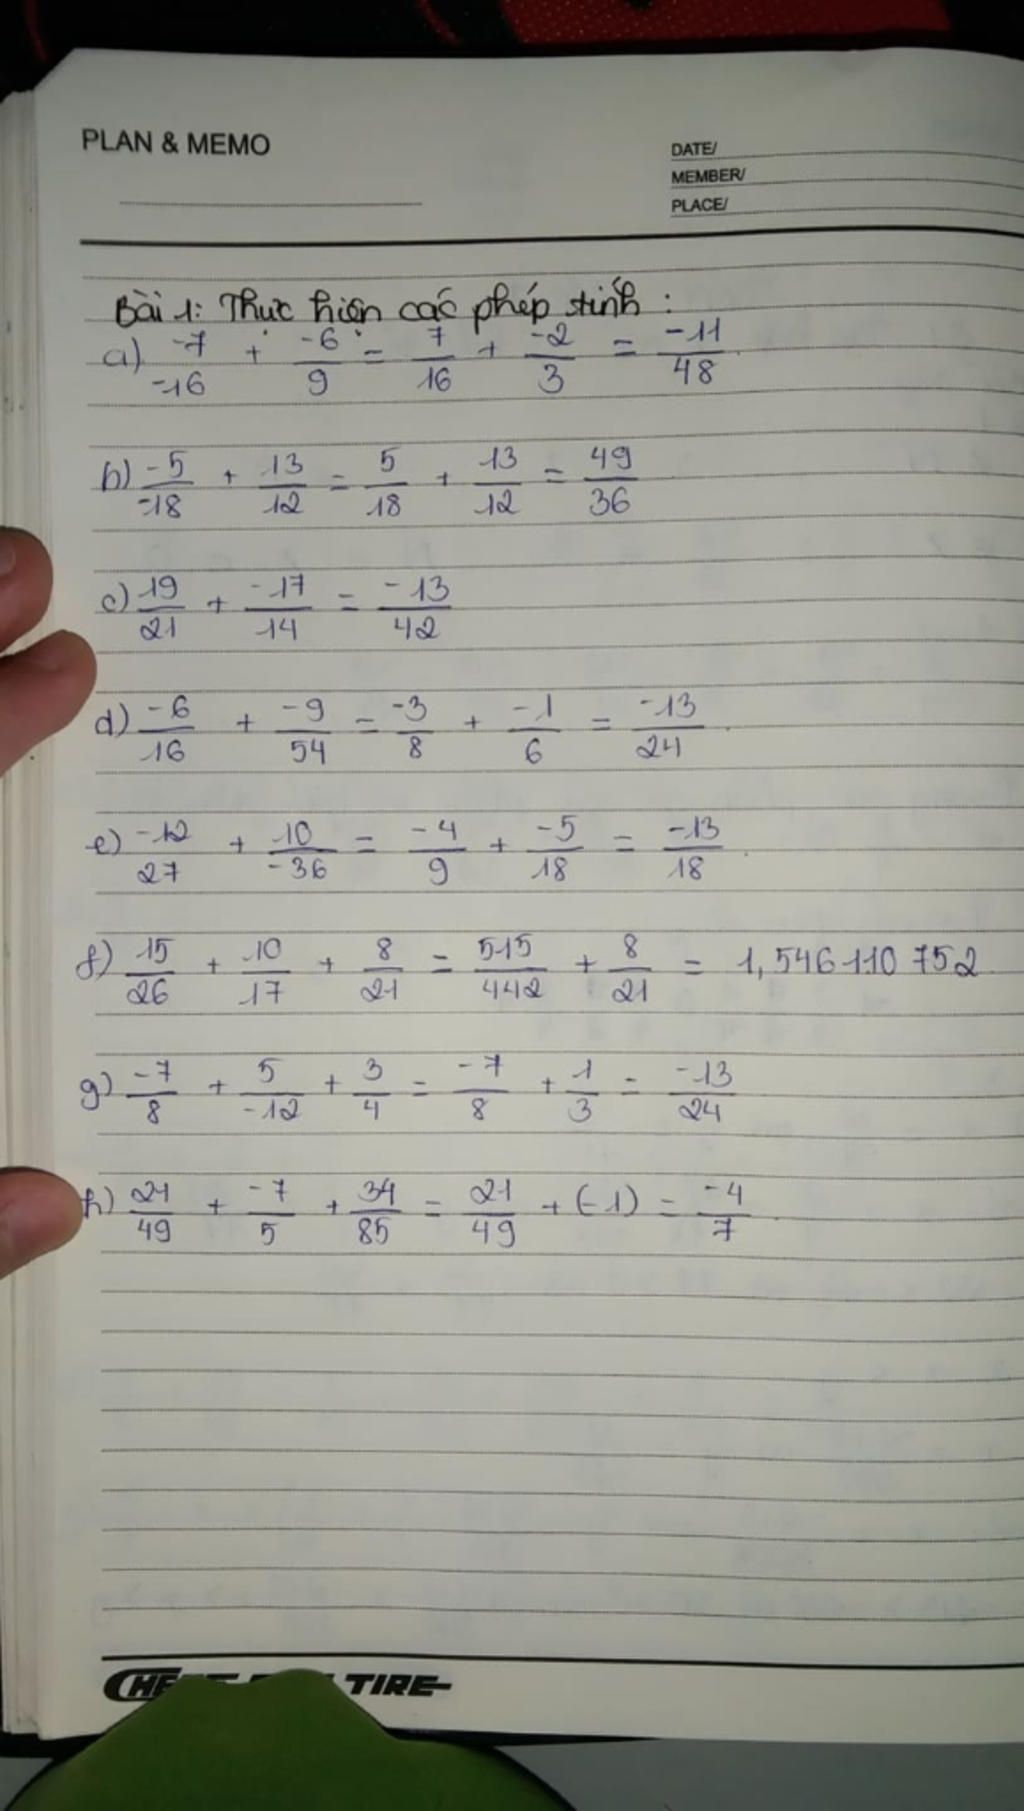 PLAN & MEMO
DATE/
MEMBER/
PLACE/
Bài 1: Thực hiện các phép tính :
a) -7/-16 + -6/9 = 7/16 + -2/3 = -11/48
b) -5/-18 + 13/12 = 5/18 + 13/12 = 49/36
c) 19/21 + -17/14 = -13/42
d) -6/16 + -9/54 = -3/8 + -1/6 = -13/24
e) -12/27 + 10/-36 = -4/9 + -5/18 = -13/18
f) 15/26 + 10/17 + 8/21 = 515/442 + 8/21 = 1,546110752
g) -7/8 + 5/-12 + 3/4 = -7/8 + 1/3 = -13/24
h) 21/49 + -7/5 + 34/85 = 21/49 + (-1) = -4/7
TIRE